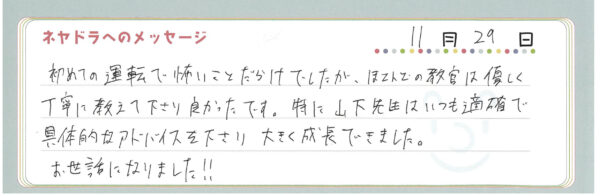 ネヤドラへのメッセージ 11月29日
初めての運転で怖いことだらけでしたが、ほとんどの教官は優しく
丁寧に教えて下さり良かったです。特に山下先生はいつも適確で
具体的なアドバイスを下さり 大きく成長できました。
お世話になりました!!